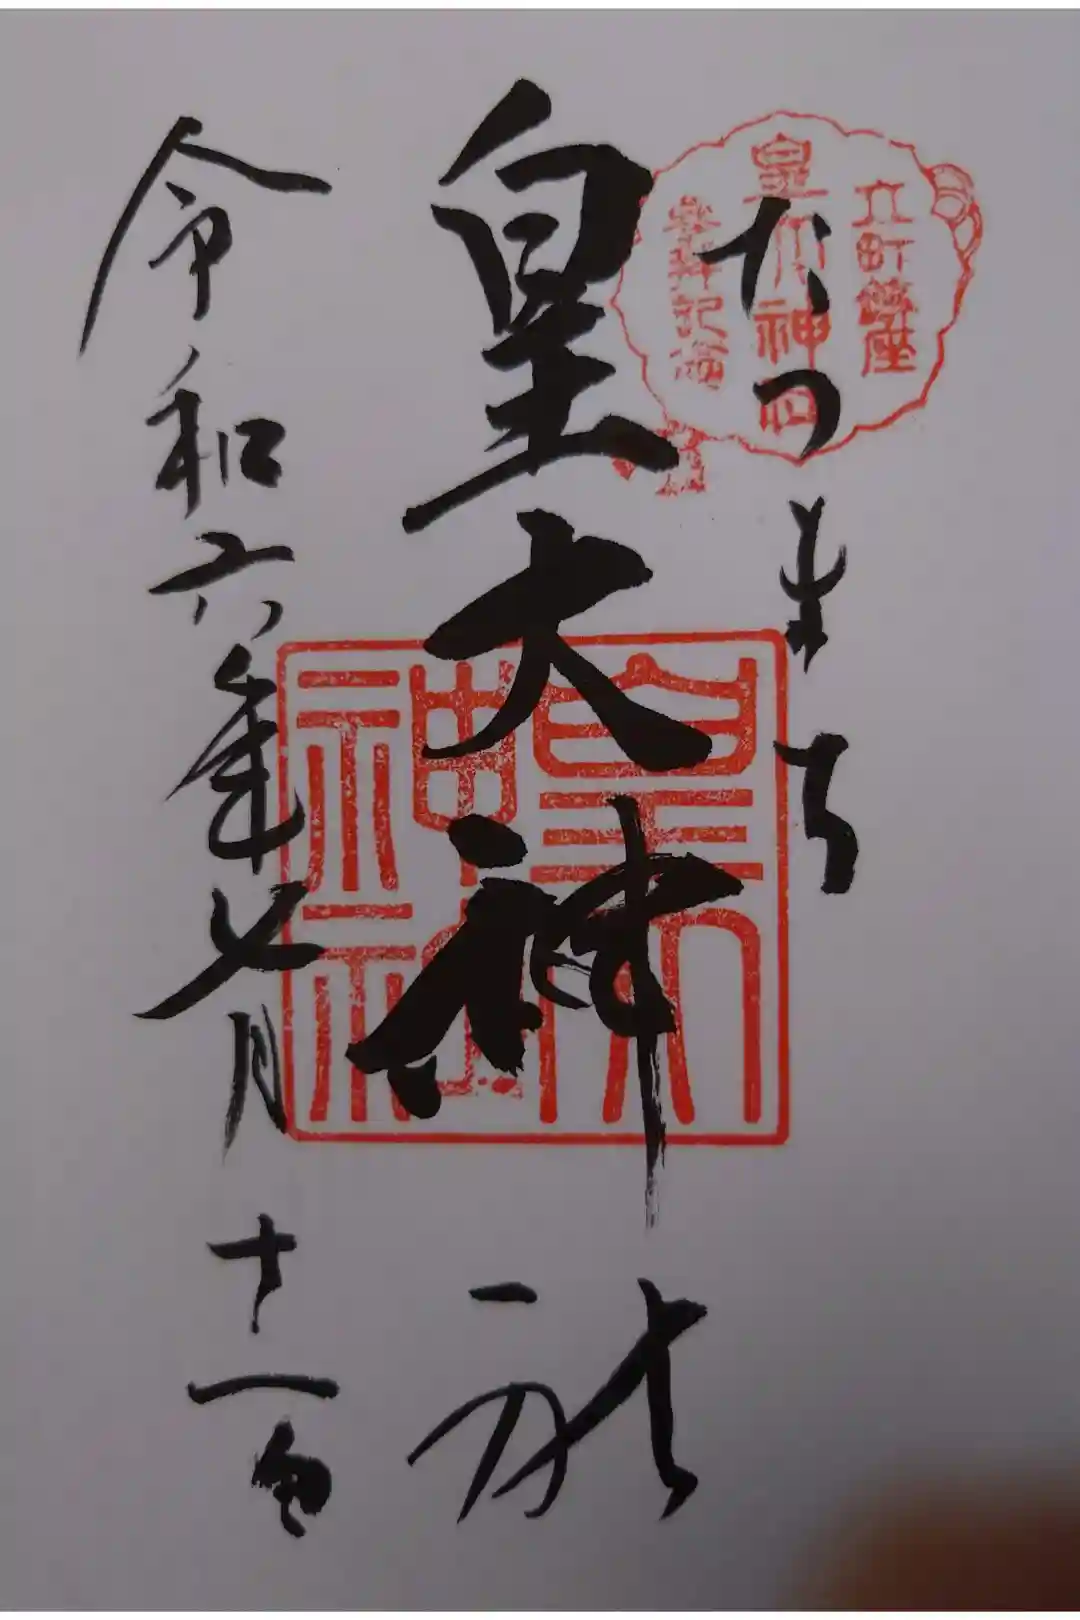 たつまち
立町鎮座
皇大神社
参拝記念
皇大神社
皇大神社
令和六年七月十一日